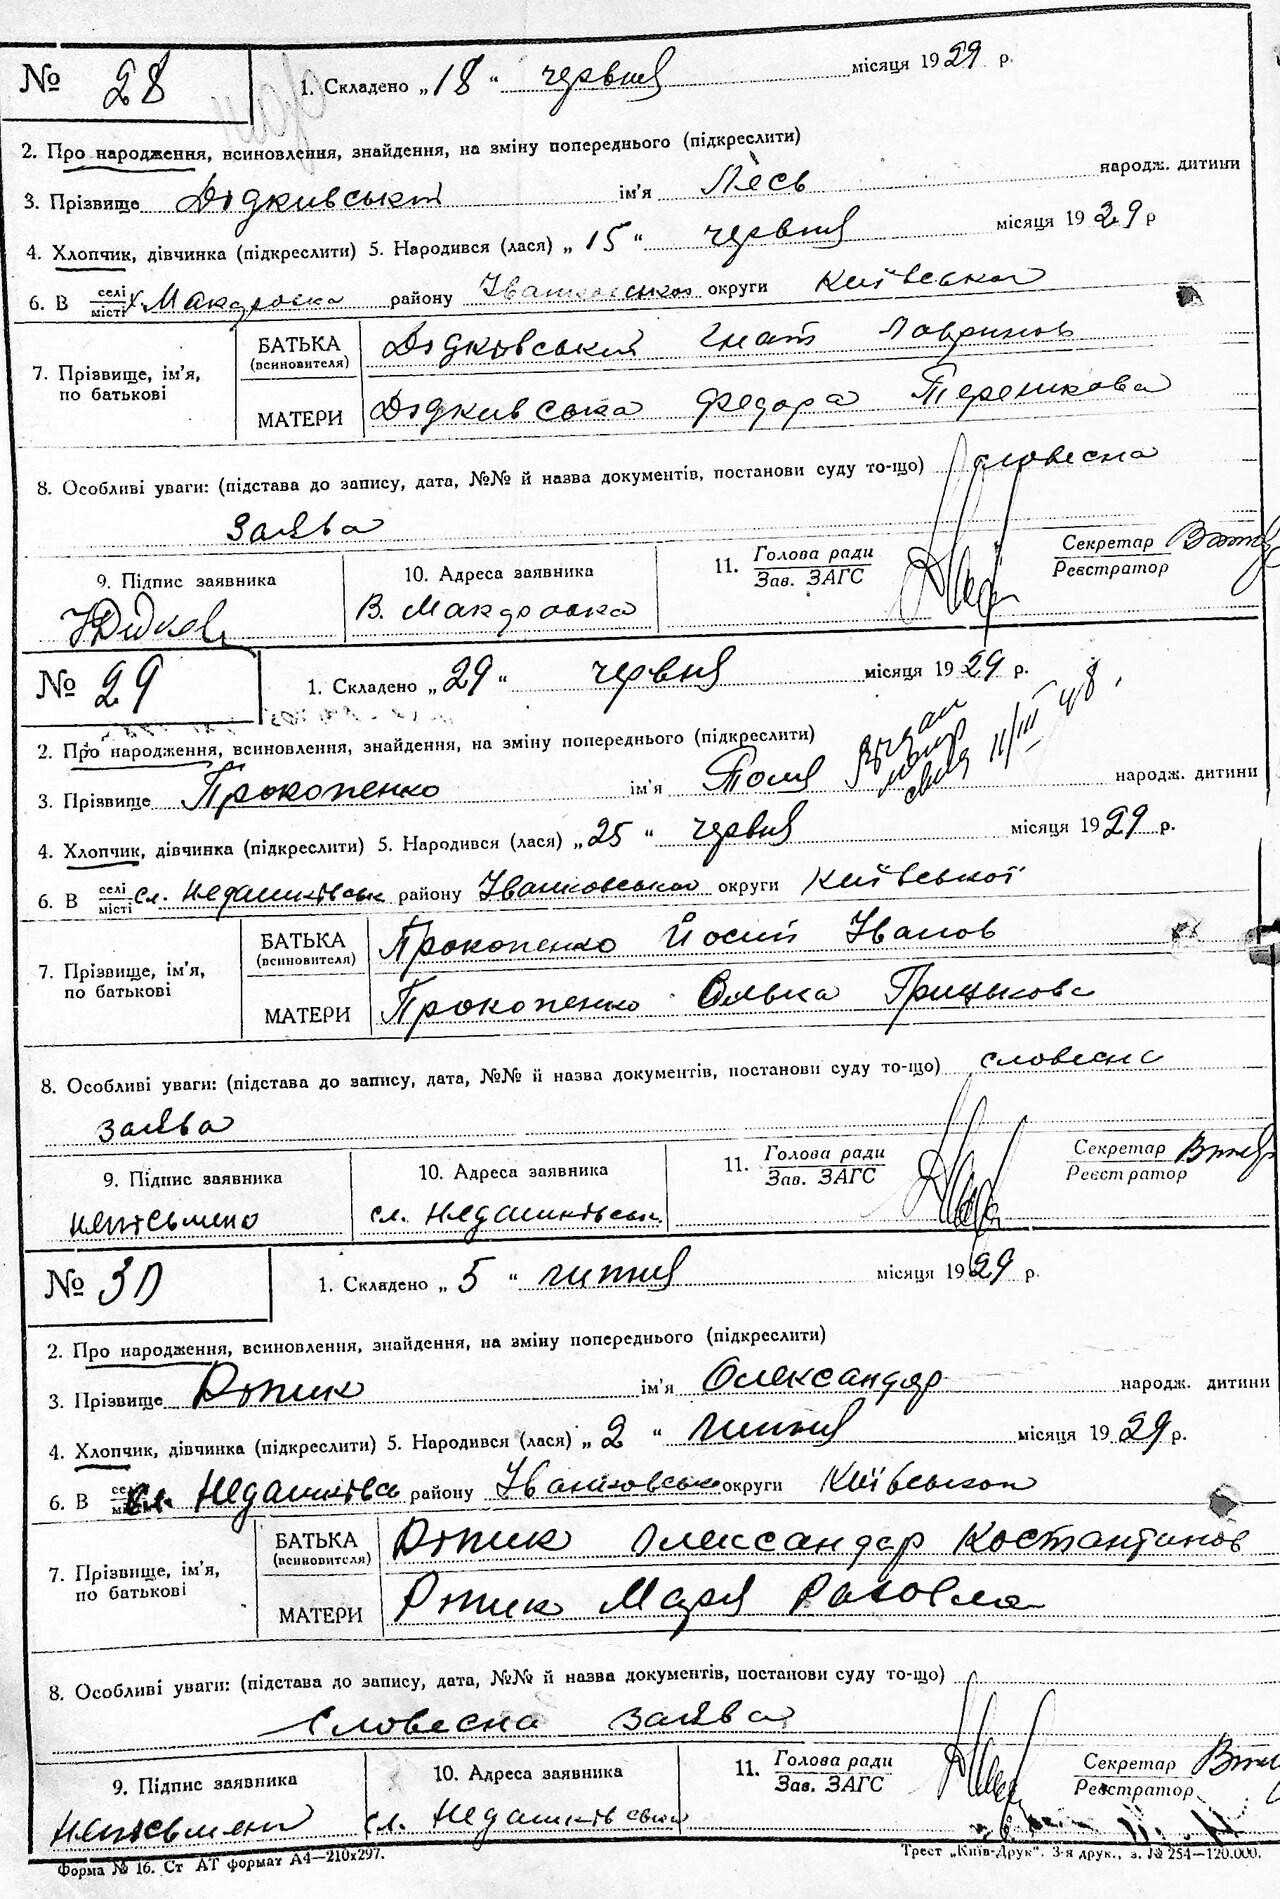 № 28 1. Складено „18“ червня місяця 1929 р.
2. Про народження, всиновлення, знайдення, на зміну попереднього (підкреслити)
3. Прізвище Дідкивський ім'я Лесь народж. дитини
4. Хлопчик, дівчинка (підкреслити) 5. Народився (лася) „15“ червня місяця 1929 р
6. В селі місті х. Макаровка району Іванковської округи Київської
7. Прізвище, ім'я, по батькові
БАТЬКА (всиновителя) Дідковський Гнат Лавринов
МАТЕРИ Дідкивська Федора Терешкова
8. Особливі уваги: (підстава до запису, дата, №№ й назва документів, постанови суду то-що) словесна
заява
9. Підпис заявника 10. Адреса заявника 11. Голова ради Зав. ЗАГС Секретар Реєстратор
В. Макаровка
№ 29 1. Складено „29“ червня місяця 1929 р.
2. Про народження, всиновлення, знайдення, на зміну попереднього (підкреслити)
3. Прізвище Прокопенко ім'я народж. дитини
11/III 48.
4. Хлопчик, дівчинка (підкреслити) 5. Народився (лася) „25“ червня місяця 1929 р.
6. В селі місті сл. Недашківськ району Іванковської округи Київської
7. Прізвище, ім'я, по батькові
БАТЬКА (всиновителя) Прокопенко Йосип Іванов
МАТЕРИ Прокопенко Олька Грицькова
8. Особливі уваги: (підстава до запису, дата, №№ й назва документів, постанови суду то-що) словесна
заява
9. Підпис заявника 10. Адреса заявника 11. Голова ради Зав. ЗАГС Секретар Реєстратор
неписьмено сл. Недашківськ
№ 30 1. Складено „5“ липня місяця 1929 р.
2. Про народження, всиновлення, знайдення, на зміну попереднього (підкреслити)
3. Прізвище ім'я Олександар народж. дитини
4. Хлопчик, дівчинка (підкреслити) 5. Народився (лася) „2“ липня місяця 1929 р.
6. В сл. Недашківсь району Іванковсько округи Київської
7. Прізвище, ім'я, по батькові
БАТЬКА (всиновителя) Олександар Костантинов
МАТЕРИ Марія
8. Особливі уваги: (підстава до запису, дата, №№ й назва документів, постанови суду то-що)
Словесна заява
9. Підпис заявника 10. Адреса заявника 11. Голова ради Зав. ЗАГС Секретар Реєстратор
неписьмени сл. Недашківська
Форма № 16. Ст АТ формат А4—210х297. Трест „Київ-Друк“. 3-я друк., з. № 254—120.000.